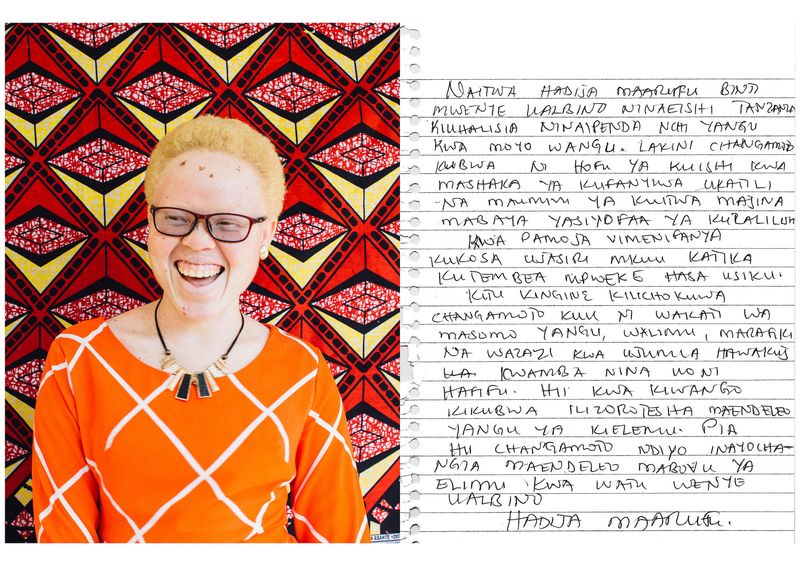 NAITWA HADIJA MAARUFU BINTI
MWENYE UALBINO NINAEISHI TANZANIA
KIUHALISIA NINAIPENDA NCHI YANGU
KWA MOYO WANGU. LAKINI CHANGAMOTO
KUBWA NI HOFU YA KUISHI KWA
MASHAKA YA KUFANYIWA UKATILI
NA MAUMIVU YA KUITWA MAJINA
MABAYA YASIYOFAA YA KUDALILISH
KWA PAMOJA VIMENIFANYA
KUKOSA UJASIRI MKUU KATIKA
KUTEMBEA MPWEKE HASA USIKU.
KITU KINGINE KILICHOKUWA
CHANGAMOTO KUU NI WAKATI WA
MASOMO YANGU, WALIMU, MARAFIKI
NA WAZAZI KWA UJUMLA HAWAKUJ
UA KWAMBA NINA UONI
HAFIFU. HII KWA KIWANGO
KIKUBWA ILIZOROTESHA MAENDELEO
YANGU YA KIELEMU. PIA
HII CHANGAMOTO NDIYO INAYOCHA-
NGIA MAENDELEO MABOVU YA
ELIMU KWA WATU WENYE
UALBINO
HADIJA MAARUFU.
ASANTE